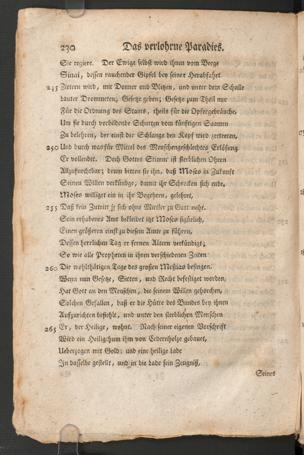 230 Das verlohrne Paradies.
Sie regiere. Der Ewige selbst wird ihnen vom Berge
Sinai, dessen rauchender Gipfel bey seiner Herabfahrt
245 Zittern wird, mit Donner und Blitzen, und unter dem Schalle
lauter Drommeten, Gesetze geben; Gesetze zum Theil nur
Für die Ordnung des Staats, theils für die Opfergebräuche,
Um sie durch verbildende Schatten vom künftigen Saamen
Zu belehren, der einst der Schlange den Kopf wird zertreten,
250 Und durch was für Mittel des Menschengeschlechtes Erlösung
Er vollendet. Doch Gottes Stimme ist sterblichen Ohren
Allzufurchtbar; drum bitten sie ihn, daß Moses in Zukunft
Seinen Willen verkündge, damit ihr Schrecken sich ende.
Moses williget ein in ihr Begehren, gelehret,
255 Daß kein Zutritt sich ohne Mittler zu Gott
Sein erhabenes Amt bekleidet itzt Moses figürlich,
Einen größeren einst zu diesem Amte zu führen,
Dessen herrlichen Tag er fernen Altern verkündigt;
So wie alle Propheten in ihren verschiedenen Zeiten
260 Die wohlthätigen Tage des großen Meßias besingen.
Wenn nun Gesetz, Sitten, und Recht befestiget worden,
Hat Gott an den Menschen, die seinem Willen gehorchen,
Solchen Gefallen, daß er die Hütte des Bundes bey ihnen
Aufzurichten befiehlt, und unter den sterblichen Menschen
265 Er, der Heilige, wohnt. Nach seiner eigenen Vorschrift
Wird ein Heiligthum ihm von Cedernholze gebauet,
Ueberzogen mit Gold; und eine heilige Lade
In dasselbe gestellt, und in die Lade sein Zeugniß,
Seines